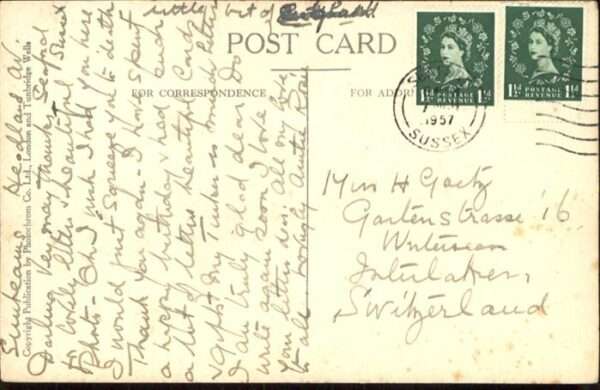 little bit of
POST CARD
FOR CORRESPONDENCE
FOR ADDR
Sunbeams, Headland Av.
Seaford
Sussex
Darling Very many thanks
for lovely letter & beautiful
Photo - Oh I wish I had you here
I would just squeeze you to death
Thank you again - I have spent
a happy birthday & had such
a lot of letters beautiful Cards
& gifts. My Tinker is much better
I am truly glad dear. Do
write again soon I love
your letters dear. All my love
to all. Auntie Rose
Copyright Publication by Photochrom Co. Ltd., London and Tunbridge Wells
1½d POSTAGE REVENUE 1½d
1½d POSTAGE REVENUE 1½d
1957
SUSSEX
Miss H Goetz
Gartenstrasse 16
Unterseen
Interlaken,
Switzerland